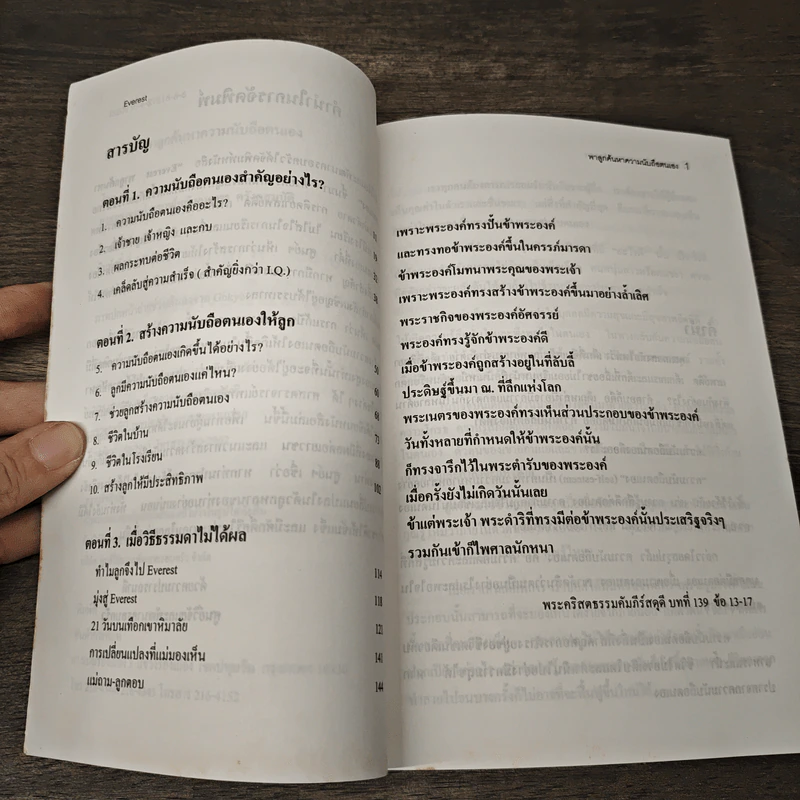 Everest
สารบัญ
ตอนที่ 1. ความนับถือตนเองสำคัญอย่างไร?
1. ความนับถือตนเองคืออะไร?
2. เจ้าชาย เจ้าหญิง และกบ
3. ผลกระทบต่อชีวิต
4. เคล็ดลับสู่ความสำเร็จ ( สำคัญยิ่งกว่า I.Q.)
ตอนที่ 2. สร้างความนับถือตนเองให้ลูก
5. ความนับถือตนเองเกิดขึ้นได้อย่างไร?
6. ลูกมีความนับถือตนเองแค่ไหน?
7. ช่วยลูกสร้างความนับถือตนเอง
8. ชีวิตในบ้าน 73
9. ชีวิตในโรงเรียน
10. สร้างลูกให้มีประสิทธิภาพ 102
ตอนที่ 3. เมื่อวิธีธรรมดาไม่ได้ผล
ทำไมลูกจึงไป Everest 114
มุ่งสู่ Everest 118
21 วันบนเทือกเขาหิมาลัย 121
การเปลี่ยนแปลงที่แม่มองเห็น 141
แม่ถาม-ลูกตอบ 144
พาลูกค้นหาความนับถือตนเอง 1
เพราะพระองค์ทรงปั้นข้าพระองค์
และทรงทอข้าพระองค์ขึ้นในครรภ์มารดา
ข้าพระองค์โมทนาพระคุณของพระเจ้า
เพราะพระองค์ทรงสร้างข้าพระองค์ขึ้นมาอย่างล้ำเลิศ
พระราชกิจของพระองค์อัศจรรย์
พระองค์ทรงรู้จักข้าพระองค์ดี
เมื่อข้าพระองค์ถูกสร้างอยู่ในที่ลับลี้
ประดิษฐ์ขึ้นมา ณ. ที่ลึกแห่งโลก
พระเนตรของพระองค์ทรงเห็นส่วนประกอบของข้าพระองค์
วันทั้งหลายที่กำหนดให้ข้าพระองค์นั้น
ก็ทรงจารึกไว้ในพระตำรับของพระองค์
เมื่อครั้งยังไม่เกิดวันนั้นเลย
ข้าแต่พระเจ้า พระดำริที่ทรงมีต่อข้าพระองค์นั้นประเสริฐจริงๆ
รวมกันเข้าก็ไพศาลนักหนา
พระคริสตธรรมคัมภีร์สดุดี บทที่ 139 ข้อ 13-17